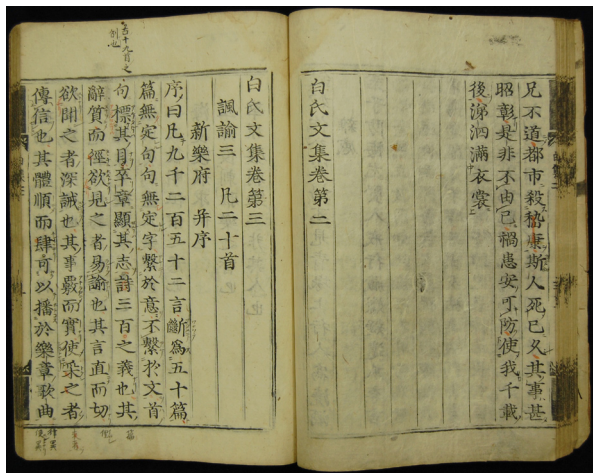 兄不道都市殺嵇康斯人死已久其事甚
昭彰是非不由已禍患安可防使我千載
後涕泗滿衣裳
白氏文集卷第二
白氏文集卷第三
諷諭三 凡二十首
新樂府 并序
序曰凡九千二百五十二言斷爲五十篇
篇無定句句無定字繫於意不繫於文首
句摽其目卒章顯其志詩三百之義也其
辭質而徑欲見之者易諭也其言直而切
欲聞之者深誡也其事覈而實使采之者
傳信也其體順而肆可以播於樂章歌曲